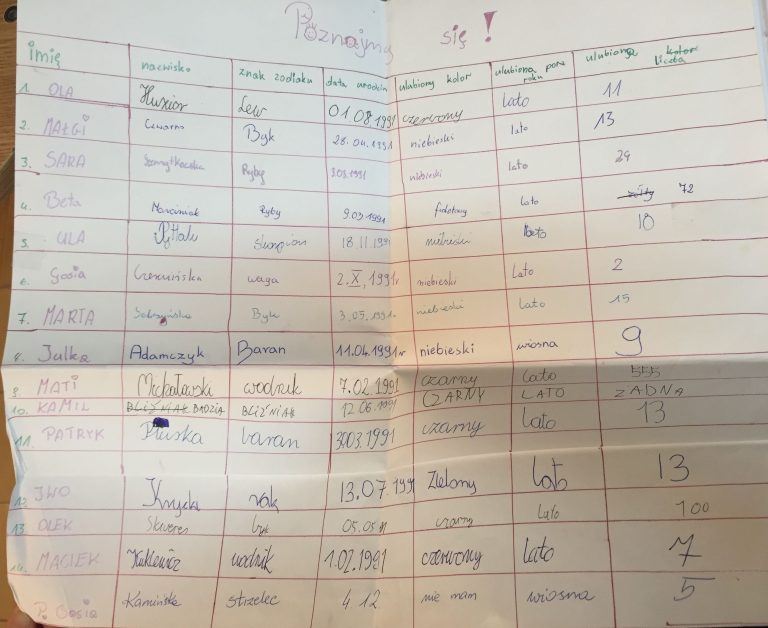 Poznajmy się!
imię nazwisko znak zodiaku data urodzin ulubiony kolor ulubiona pora roku ulubiona kolor liczba
1. OLA Lew 01.08.1991 czerwony lato 11
2. MAŁGI Czwarno Byk 28.04.1991 niebieski lato 13
3. SARA Ryby 9.03.1991 niebieski lato 29
4. Beta Marciniak Ryby 9.03.1991 fioletowy lato żółty 72
5. ULA Skorpion 18.11.1991 niebieski lato 18
6. Gosia Czerwińska waga 2.X.1991r niebieski lato 2
7. MARTA Byk 3.05.1991r. niebieski lato 15
8. Julka Adamczyk Baran 11.04.1991r niebieski wiosna 9
9. MATI Michałowski wodnik 7.02.1991 czarny lato 555
10. KAMIL BLIŹNIAK BADZIA BLIŹNIAK 12.06.1991 CZARNY LATO ŻADNA
11. PATRYK Pluska baran 30.03.1991 czarny lato 13
12. IWO rak 13.07.1991 Zielony lato 13
13. OLEK Skweres byk 05.05.91 czarny lato 100
14. MACIEK Kukiewicz wodnik 1.02.1991 czerwony lato 7
P. Gosia Kamińska strzelec 4 12 nie mam wiosna 5